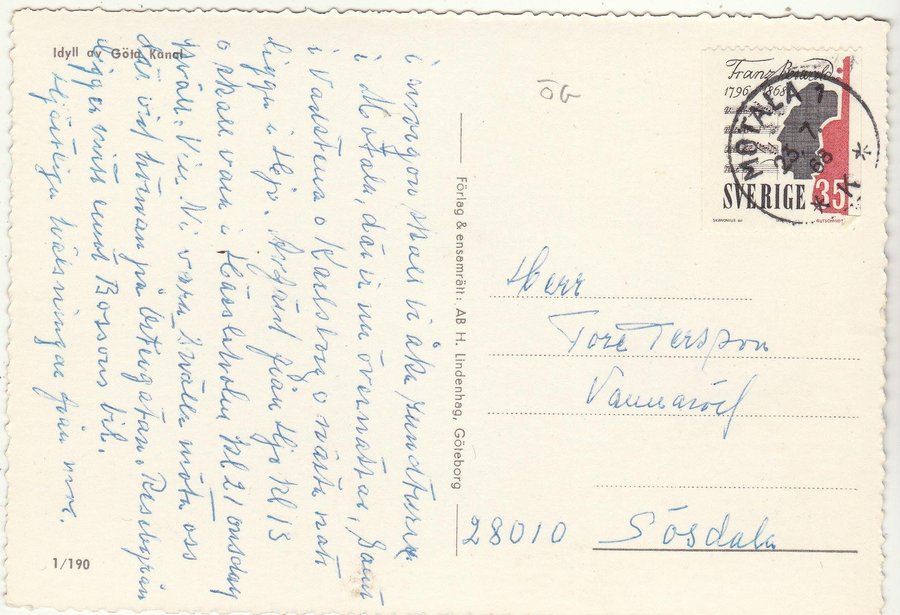 Idyll av Göta Kanal
i morgon skall vi åka rundtur
i Motala, där vi nu övernattar, samt
i Vadstena o Karlsborg o nästa natt
ligga i Hjo. Avfärd från Hjo kl 15
o skall vara i Hässleholm kl 21 onsdag
kväll. Vill Ni vara snälla möta oss
där vid hörnan på Östergatan. Resebyrån
ligger mitt emot Bossons bil.
Hjärtliga hälsningar från mor.
1/190
Förlag & ensamrätt: AB H. Lindenhag, Göteborg
OG
Franz Berwald
1796 1868
SVERIGE 35
MOTALA 1
23. 7 68
Herr
Tore
Vannaröd
28010 Sösdala